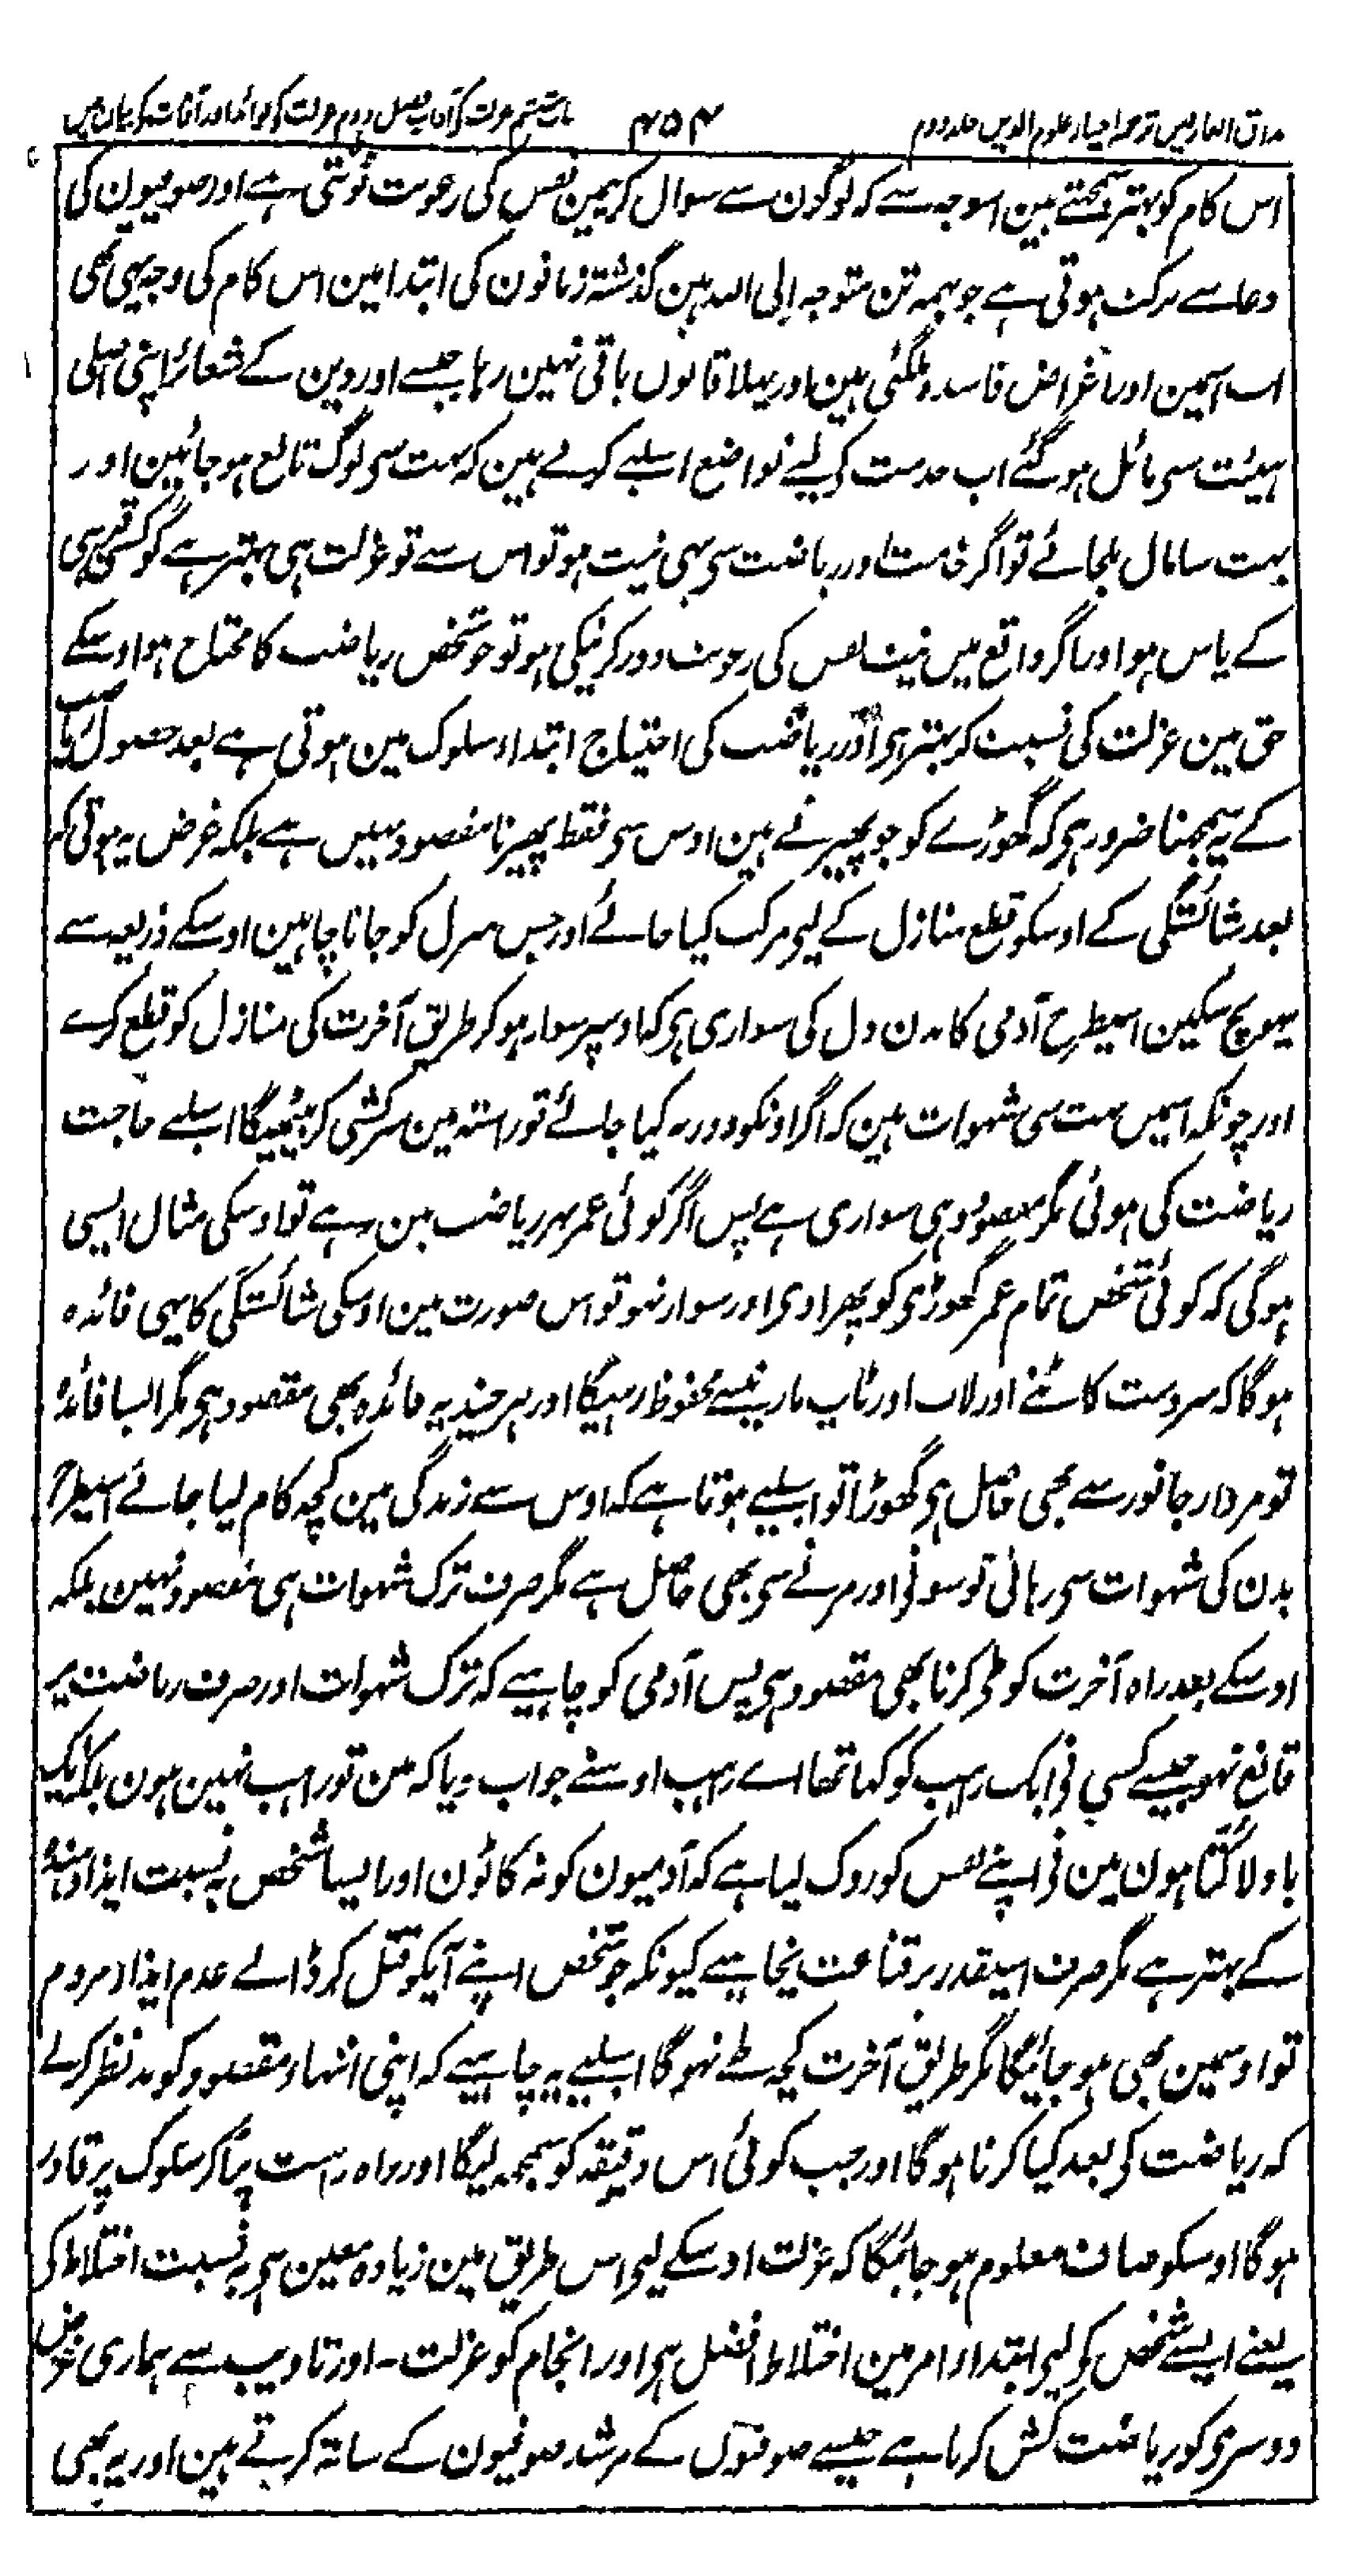 مذاق العارفین ترجمہ احیاء علوم الدین جلد دوم ۴۵۴ باب ششم عزلت کے آداب فصل دوم عزلت کے فوائد اور آفات کے بیان میں
اس کام کو بہتر سمجھتے ہین اسوجہ سے کہ لوگون سے سوال کریمین نفس کی رعونت ٹوٹتی ہے اور صوفیون کی
دعا سے برکت ہوتی ہے جو ہمہ تن متوجہ الی اللہ ہین گذشتہ زمانون کی ابتدا مین اس کام کی وجہ یہی تھی
اب اسمین اور اغراض فاسدہ ملگئی ہین اور پہلا قانون باقی نہین رہا جیسے اور دین کے شعائر اپنی اصلی
ہیئت سی مائل ہو گئے اب خدمت کے لیے تواضع اسلیے کرتے ہین کہ بہت سی لوگ تابع ہو جائین اور
بہت سا مال ملجائے تو اگر خدمت اور ریاضت سی یہی نیت ہو تو اس سے تو عزلت ہی بہتر ہے گو کسی قبر ہی
کے پاس ہو اور اگر واقع میں نیت نفس کی رعونت دور کرنیکی ہو تو جو شخص ریاضت کا محتاج ہو اوسکے
حق مین عزلت کی نسبت کر بہتر ہی اور ریاضت کی احتیاج ابتداء سلوک مین ہوتی ہے بعد حصول ریاضت
کے یہ سمجھنا ضرور ہی کہ گھوڑے کو جو پھیرتے ہین اوس سی فقط پھیرنا مقصود نہیں ہے بلکہ غرض یہ ہوتی کہ
بعد شائستگی کے اوسکو قطع منازل کے لیے مرکب کیا جائے اور جس منزل کو جانا چاہین اوسکے ذریعہ سے
پہونچ سکین اسیطرح آدمی کا بدن دل کی سواری ہی کہ اوسپر سوار ہو کر طریق آخرت کی منازل کو قطع کرے
اور چونکہ اسمیں بہت سی شہوات ہین کہ اگر اونکو دور نہ کیا جائے تو راستہ مین سرکشی کر بیٹھیگا اسلیے حاجت
ریاضت کی ہوئی مگر مقصود وہی سواری ہے پس اگر کوئی عمر بھر ریاضت مین رہے تو اوسکی مثال ایسی
ہوگی کہ کوئی شخص تمام عمر گھوڑی کو پھراوی اور سوار نہو تو اس صورت مین اوسکی شائستگی کا یہی فائدہ
ہوگا کہ سردست کاٹنے اور لات اور ٹاپ مارنیسے محفوظ رہیگا اور ہر چند یہ فائدہ بھی مقصود ہی مگر ایسا فائدہ
تو مردار جانور سے بھی حاصل ہی گھوڑا تو اسلیے ہوتا ہے کہ اوس سے زندگی مین کچھ کام لیا جائے اسیطرح
بدن کی شہوات سی رہائی تو سونے اور مرنے سی بھی حاصل ہے مگر صرف ترک شہوات ہی مقصود نہین بلکہ
اوسکے بعد راہ آخرت کو طی کرنا بھی مقصود ہی پس آدمی کو چاہیے کہ ترک شہوات اور صرف ریاضت پر
قانع نہو جیسے کسی نے ایک راہب کو کہا تھا اے راہب اوسنے جواب دیا کہ مین تو راہب نہین ہون بلکہ ایک
باولا کتا ہون مین نے اپنے نفس کو روک لیا ہے کہ آدمیون کو نہ کاٹون اور ایسا شخص بہ نسبت ایذا دہندہ
کے بہتر ہے مگر صرف اسیقدر پر قناعت نچاہیے کیونکہ جو شخص اپنے آپکو قتل کر ڈالے عدم ایذاء مردم
تو اوسمین بھی ہو جائیگا مگر طریق آخرت کچھ طے نہوگا اسلیے یہ چاہیے کہ اپنی انتہاء مقصود کو مد نظر کرلے
کہ ریاضت کے بعد کیا کرنا ہوگا اور جب کوئی اس دقیقہ کو سمجھ لیگا اور راہ راست پاکر سلوک پر قادر
ہوگا اوسکو صاف معلوم ہو جائیگا کہ عزلت اوسکے لیے اس طریق مین زیادہ معین ہی بہ نسبت اختلاط کی
یعنے ایسے شخص کے لیے ابتداء امر مین اختلاط افضل ہی اور انجام کو عزلت - اور تادیب سے ہماری غرض
دوسری کو ریاضت کش کرنا ہے جیسے صوفیوں کے مرشد صوفیون کے ساتھ کرتے ہین اور یہ بھی